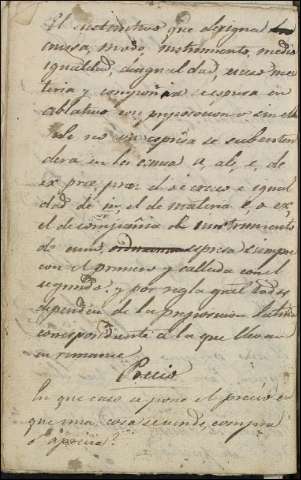 El sustantivo que designa la
causa, modo, instrumento, medio
igualdad, desigualdad, ma
teria y compañia se espresa en
ablativo con preposicion o sin el
la no se espresa se subenten
dera en los a, ab, e, de
ex pre, pro: el de exceso e igual
dad de in, el de materia e, o ex,
el de compañia de instrumento
de cum, espresa siempre
con el primero y callada con el
segundo, y por regla gral todos
dependen de la preposicion latina
correspondiente a la que llevan
en romance.
Precio
En que caso se pone el precio en
que una cosa se vende, compra
o aprecia?